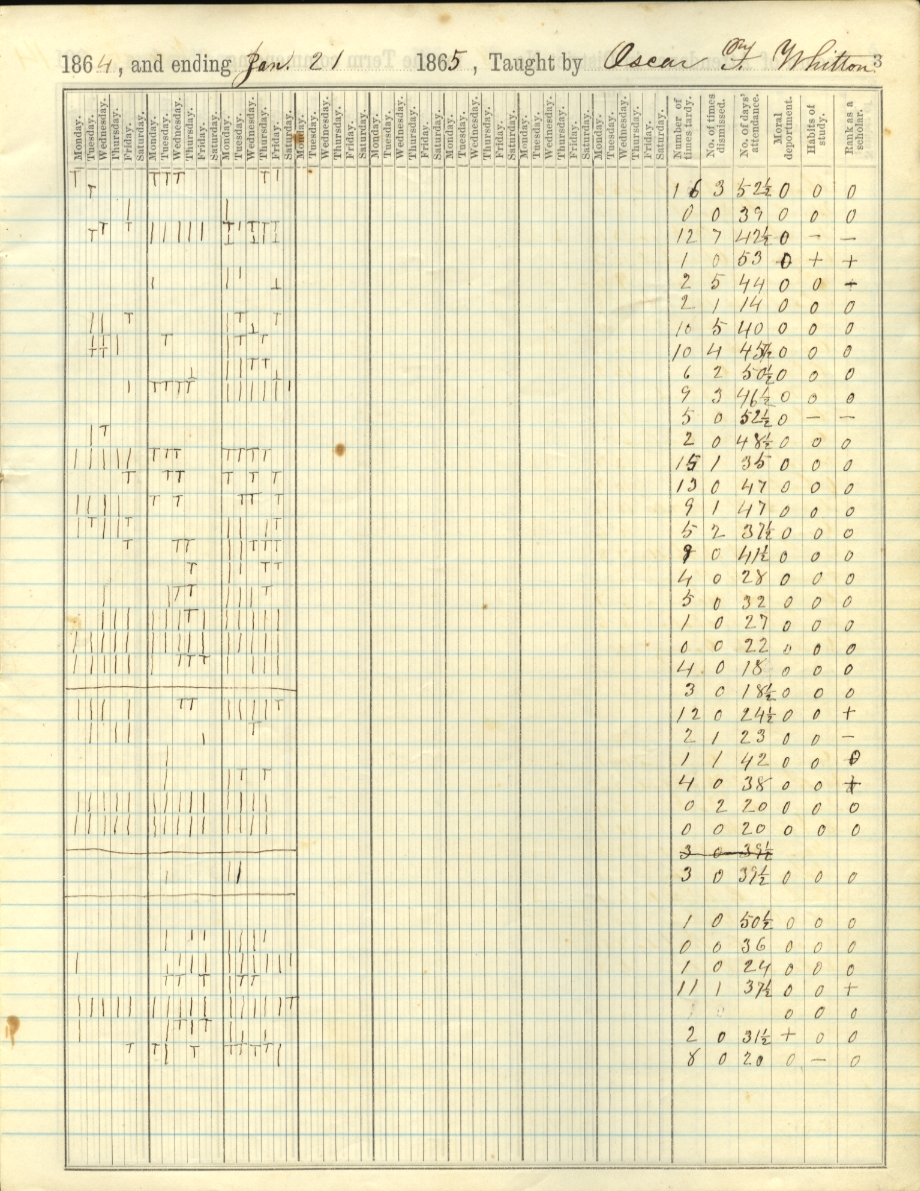 1864, and ending Jan. 21 1865, Taught by Oscar F. Whitton 3
Monday. Tuesday. Wednesday. Thursday. Friday. Saturday. Monday. Tuesday. Wednesday. Thursday. Friday. Saturday. Monday. Tuesday. Wednesday. Thursday. Friday. Saturday. Monday. Tuesday. Wednesday. Thursday. Friday. Saturday. Monday. Tuesday. Wednesday. Thursday. Friday. Saturday. Monday. Tuesday. Wednesday. Thursday. Friday. Saturday. Monday. Tuesday. Wednesday. Thursday. Friday. Saturday. Monday. Tuesday. Wednesday. Thursday. Friday. Saturday. Number of times tardy. No. of times dismissed. No. of days' attendance. Moral deportment. Habits of study. Rank as a scholar.
16 3 52½ 0 0 0
0 0 39 0 0 0
12 7 42½ 0 - -
1 0 53 0 + +
2 5 44 0 0 +
2 1 14 0 0 0
10 5 40 0 0 0
10 4 45½ 0 0 0
6 2 50½ 0 0 0
9 3 46½ 0 0 0
5 0 52½ 0 - -
2 0 48½ 0 0 0
15 1 35 0 0 0
13 0 47 0 0 0
9 1 47 0 0 0
5 2 37½ 0 0 0
9 0 41½ 0 0 0
4 0 28 0 0 0
5 0 32 0 0 0
1 0 27 0 0 0
0 0 22 0 0 0
4 0 18 0 0 0
3 0 18½ 0 0 0
12 0 24½ 0 0 +
2 1 23 0 0 -
1 1 42 0 0 0
4 0 38 0 0 +
0 2 20 0 0 0
0 0 20 0 0 0
3 0 39½
3 0 39½ 0 0 0
1 0 50½ 0 0 0
0 0 36 0 0 0
1 0 24 0 0 0
11 1 37½ 0 0 +
0 0 0
2 0 31½ + 0 0
8 0 20 0 - 0